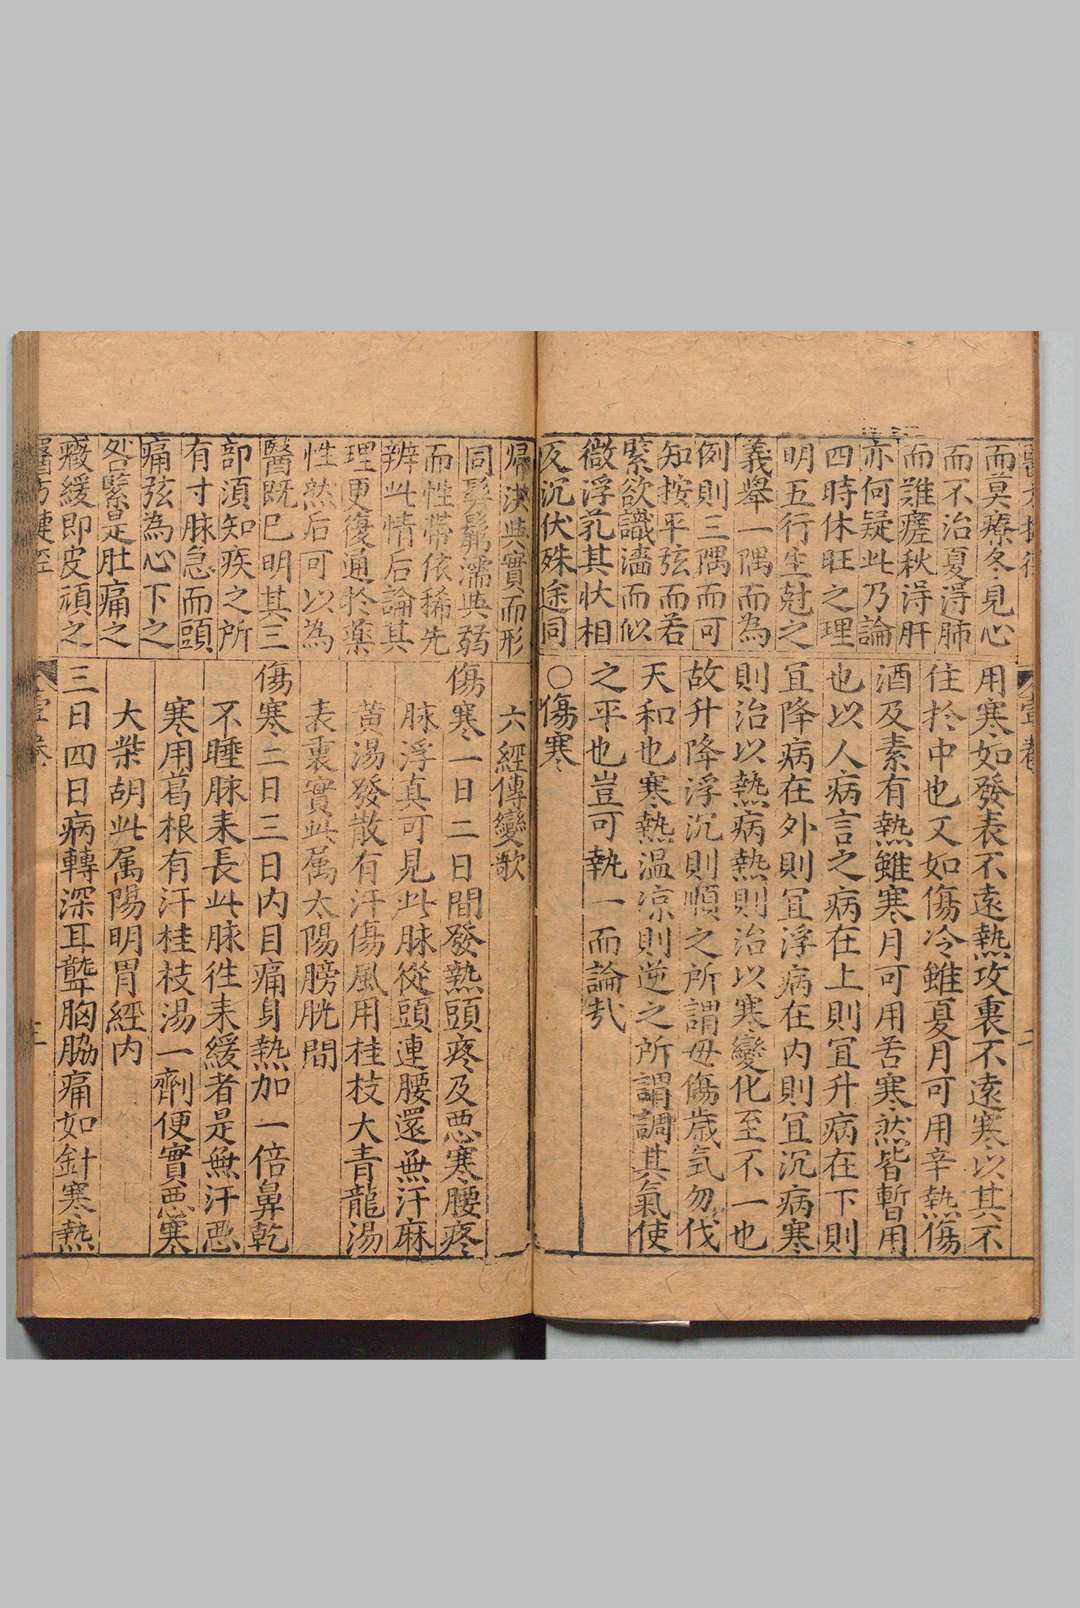 而莫療冬見心
而不治夏淂肺
而難瘥秋淂肝
亦何疑此乃論
四時休旺之理
明五行生尅之
義舉一隅而為
例則三隅而可
知按平弦而若
緊欲識濇而似
微浮芤其狀相
反沉伏殊途同
用寒如發表不遠熱攻裏不遠寒以其不
住扵中也又如傷冷雖夏月可用辛熱傷
酒及素有熱雖寒月可用苦寒然皆暫用
也以人病言之病在上則冝升病在下則
冝降病在外則冝浮病在内則冝沉病寒
則治以熱病熱則治以寒變化至不一也
故升降浮沉則順之所謂毋傷歲氣勿伐
天和也寒熱温凉則逆之所謂調其氣使
之平也豈可執一而論哉
○傷寒
歸洪與實而形
同髣髴濡與弱
而性帶依稀先
辨此情后論其
理更復通扵藥
性然后可以為
醫既已明其三
部湏知疾之所
有寸脉急而頭
痛弦為心下之
咎緊是肚痛之
癥緩即皮頑之
醫方捷徑
六經傳變歌
傷寒一日二日間發熱頭疼及惡寒腰疼
脉浮真可見此脉從頭連腰還無汗麻
黄湯發散有汗傷風用桂枝大青龍湯
表裏實此属太陽膀胱間
傷寒二日三日内目痛身熱加一倍鼻乾
不睡脉来長此脉徃来緩者是無汗惡
寒用葛根有汗桂枝湯一劑便實惡寒
大柴胡此属陽明胃經内
三日四日病轉深耳聾胸脇痛如針寒熱
壹卷